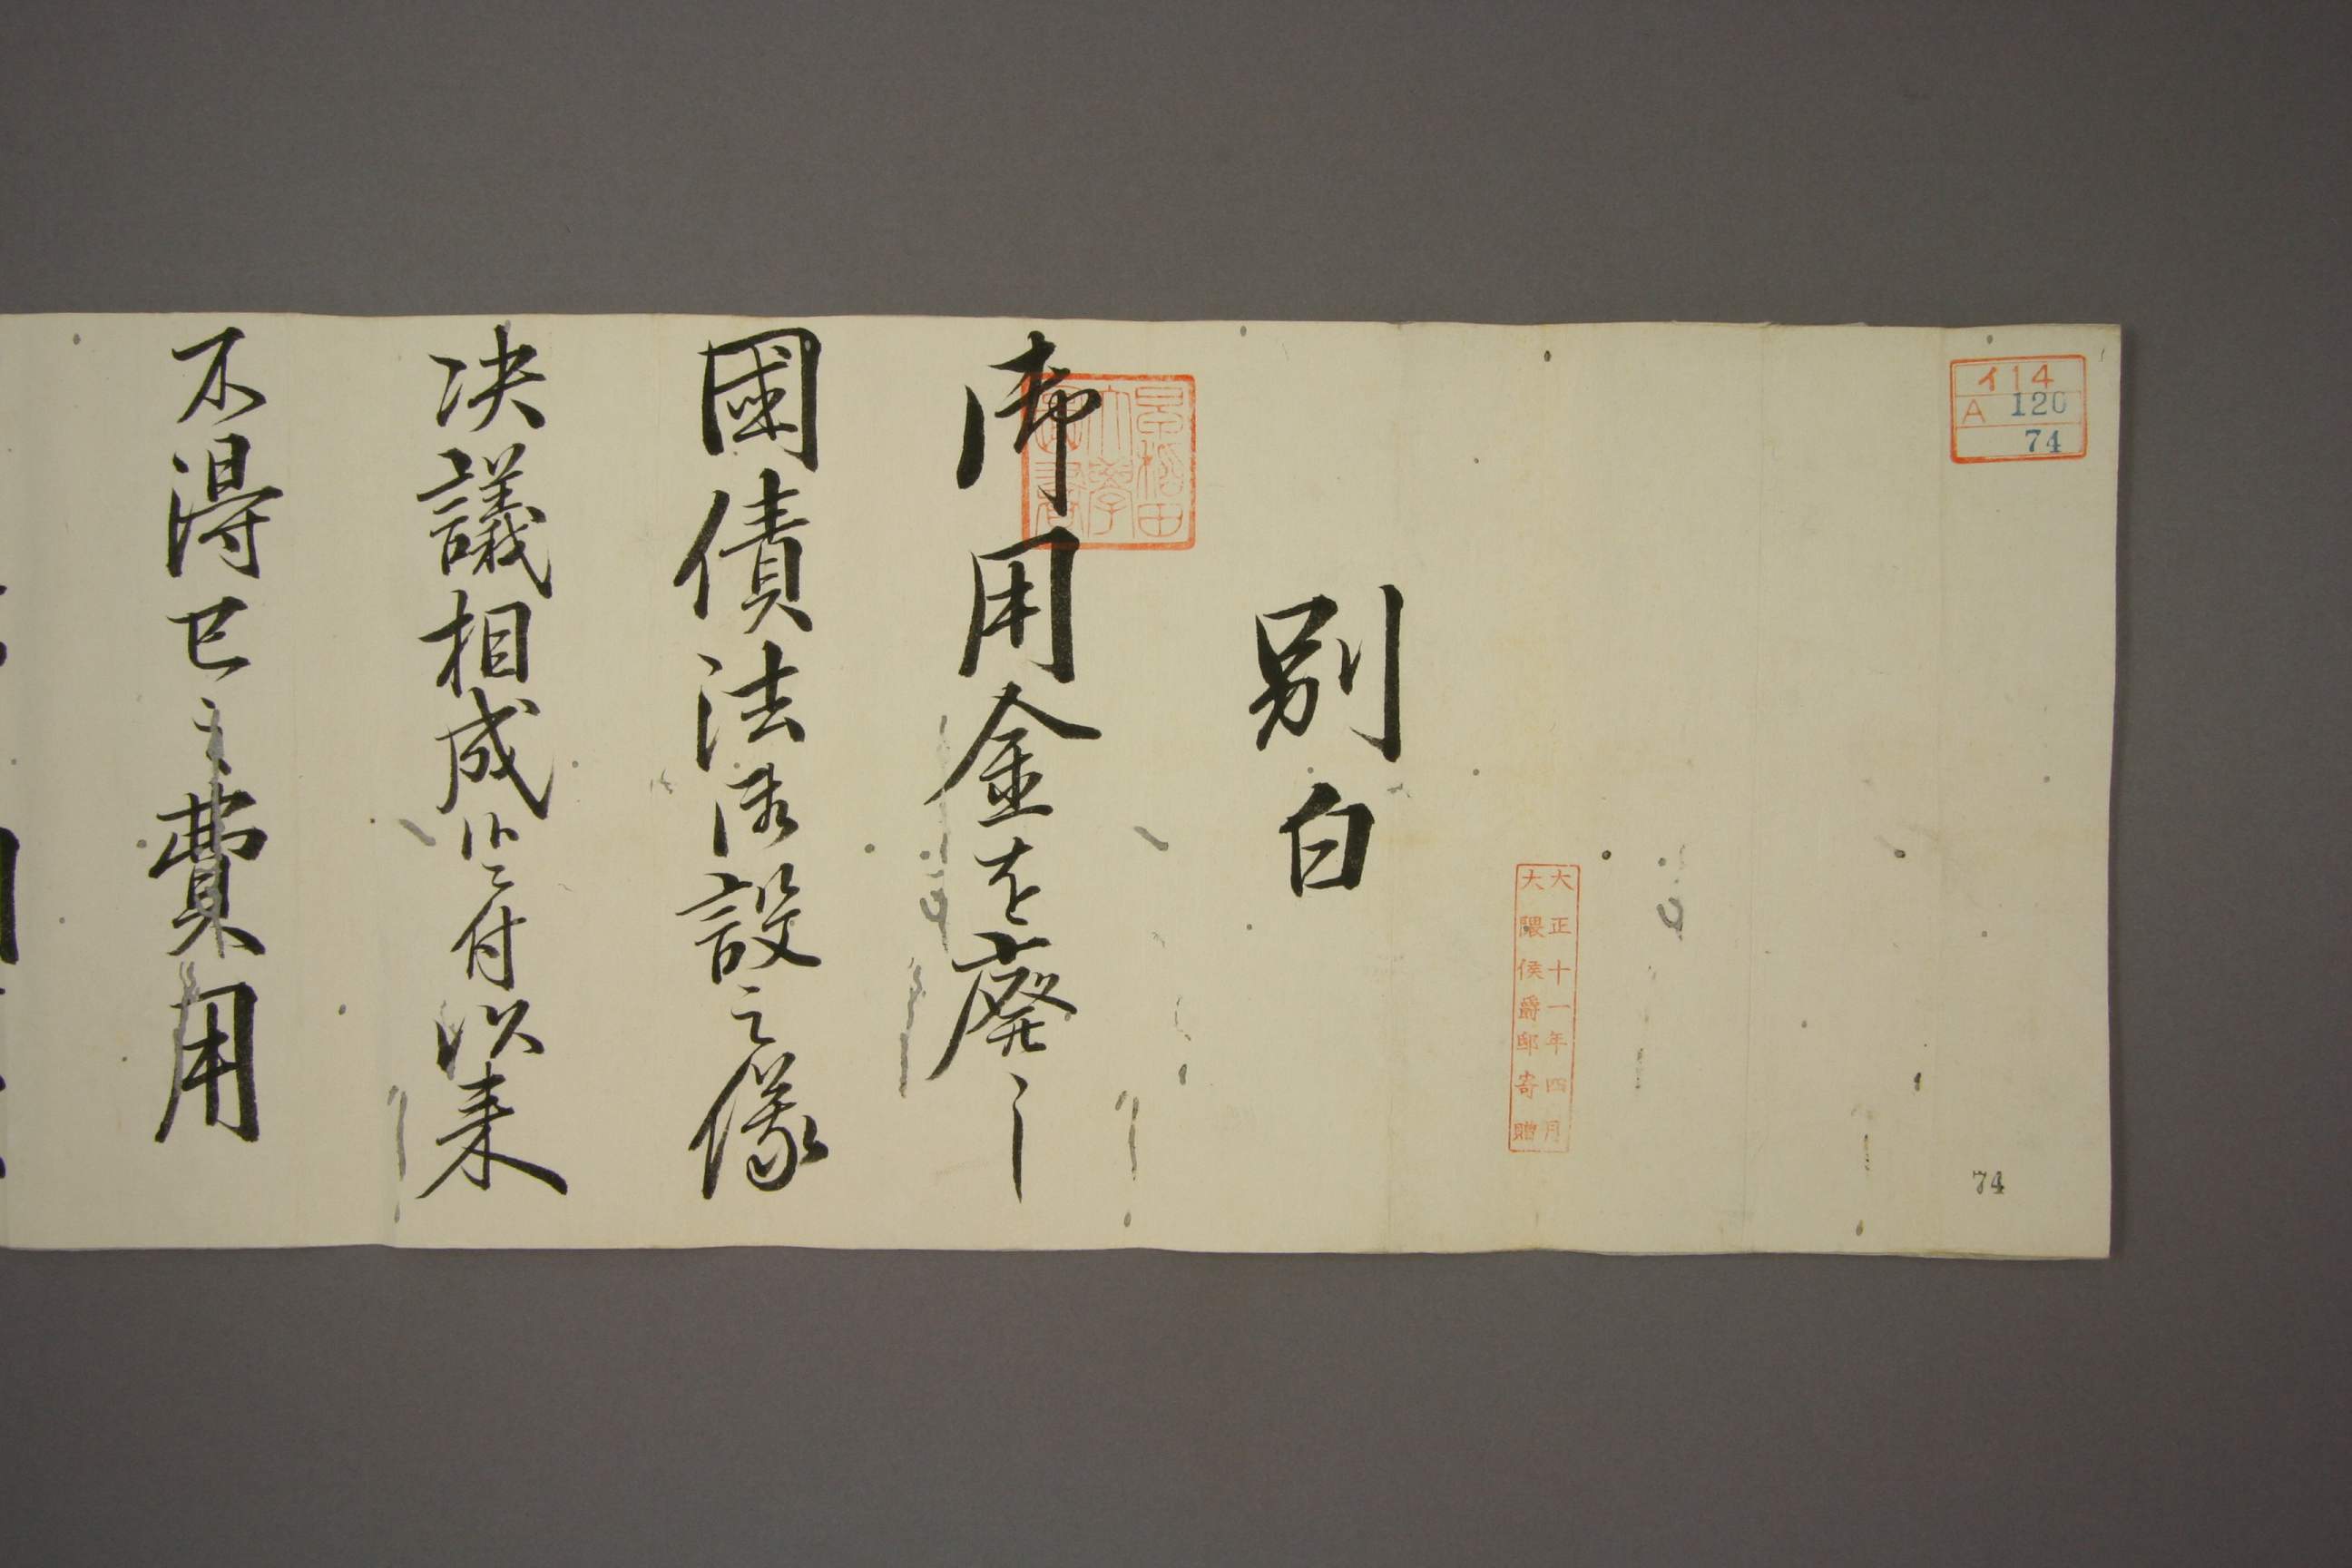 イ14
A 120
74
74
大正十一年四月
大隈侯爵邸寄贈
別白
早稻田
大學
圖書
御用金を廃し
國債法御設之儀
决議相成候ニ付以来
不得已之費用